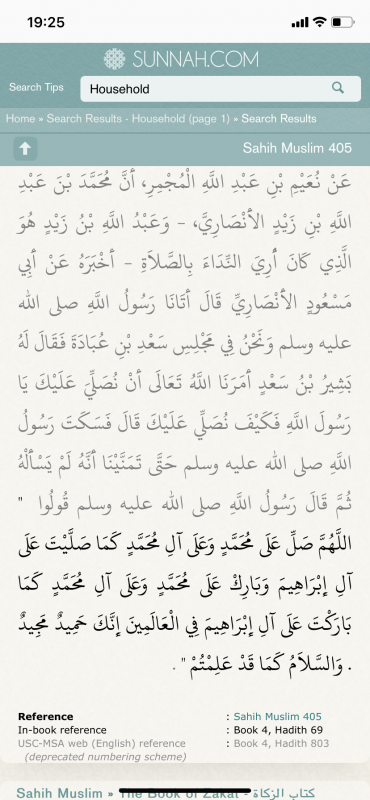 19:25
SUNNAH.COM
Search Tips
Household
Home » Search Results - Household (page 1) » Search Results
Sahih Muslim 405
عَنْ نُعَيْمِ بْنِ عَبْدِ اللَّهِ الْمُجْمِرِ، أَنَّ مُحَمَّدَ بْنَ عَبْدِ
اللَّهِ بْنِ زَيْدٍ الأَنْصَارِيَّ، - وَعَبْدُ اللَّهِ بْنُ زَيْدٍ هُوَ
الَّذِي كَانَ أُرِيَ النِّدَاءَ بِالصَّلاَةِ - أَخْبَرَهُ عَنْ أَبِي
مَسْعُودٍ الأَنْصَارِيِّ قَالَ أَتَانَا رَسُولُ اللَّهِ صلى الله
عليه وسلم وَنَحْنُ فِي مَجْلِسِ سَعْدِ بْنِ عُبَادَةَ فَقَالَ لَهُ
بَشِيرُ بْنُ سَعْدٍ أَمَرَنَا اللَّهُ تَعَالَى أَنْ نُصَلِّيَ عَلَيْكَ يَا
رَسُولَ اللَّهِ فَكَيْفَ نُصَلِّي عَلَيْكَ قَالَ فَسَكَتَ رَسُولُ
اللَّهِ صلى الله عليه وسلم حَتَّى تَمَنَّيْنَا أَنَّهُ لَمْ يَسْأَلْهُ
ثُمَّ قَالَ رَسُولُ اللَّهِ صلى الله عليه وسلم قُولُوا ‏"‏
اللَّهُمَّ صَلِّ عَلَى مُحَمَّدٍ وَعَلَى آلِ مُحَمَّدٍ كَمَا صَلَّيْتَ عَلَى
آلِ إِبْرَاهِيمَ وَبَارِكْ عَلَى مُحَمَّدٍ وَعَلَى آلِ مُحَمَّدٍ كَمَا
بَارَكْتَ عَلَى آلِ إِبْرَاهِيمَ فِي الْعَالَمِينَ إِنَّكَ حَمِيدٌ مَجِيدٌ
‏.‏ وَالسَّلاَمُ كَمَا قَدْ عَلِمْتُمْ ‏"‏ ‏.‏
Reference : Sahih Muslim 405
In-book reference : Book 4, Hadith 69
USC-MSA web (English) reference : Book 4, Hadith 803
(deprecated numbering scheme)
Sahih Muslim » The Book of Zakat - كتاب الزكاة